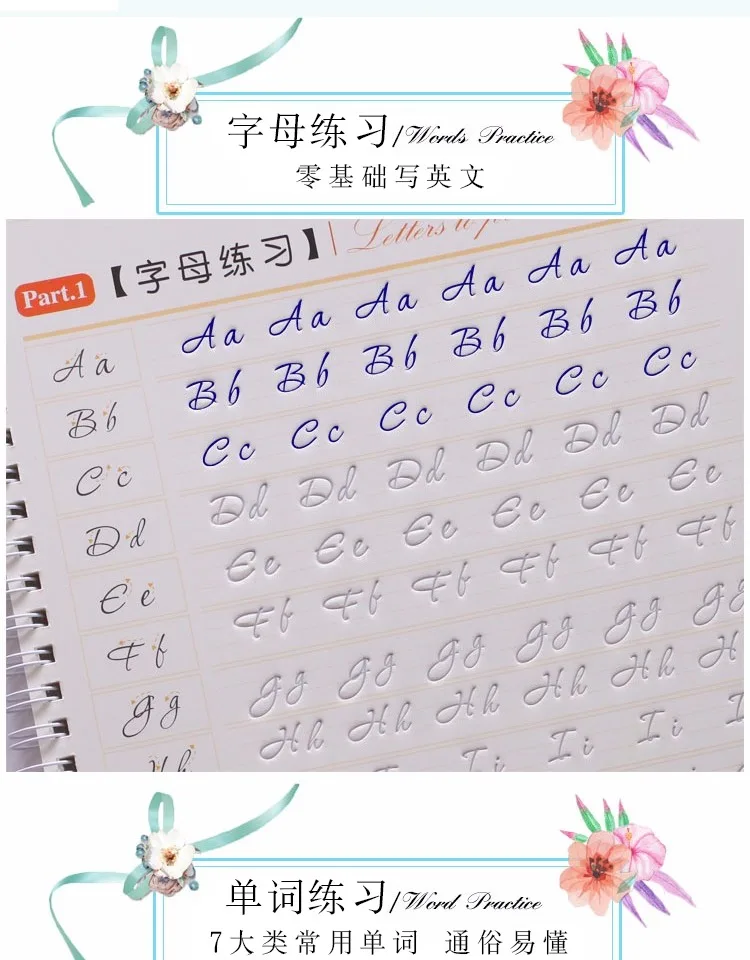 字母练习/Words Practice
零基础写英文
Part.1 【字母练习】 Letters to
Aa Aa Aa Aa Aa Aa Aa
Bb Bb Bb Bb Bb Bb Bb
Cc Cc Cc Cc Cc Cc Cc
Dd Dd Dd Dd Dd Dd Dd
Ee Ee Ee Ee Ee Ee Ee
Ff Ff Ff Ff Ff Ff Ff
Gg Gg Gg Gg Gg Gg Gg
Hh Hh Hh Hh Hh Hh H
Ii Ii Ii I
单词练习/Word Practice
7大类常用单词 通俗易懂